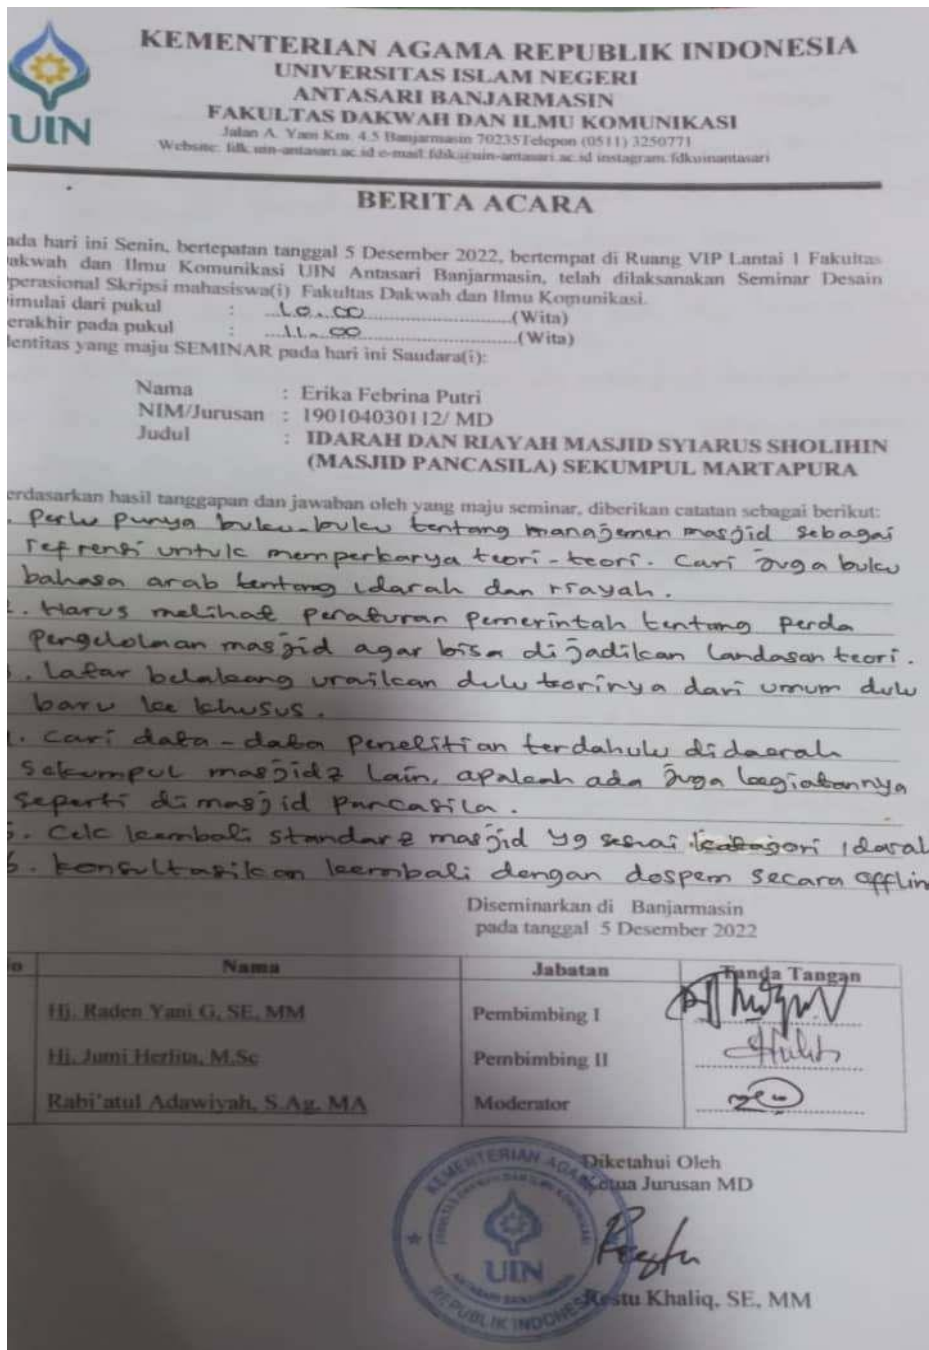 KEMENTERIAN AGAMA REPUBLIK INDONESIA
UNIVERSITAS ISLAM NEGERI
ANTASARI BANJARMASIN
FAKULTAS DAKWAH DAN ILMU KOMUNIKASI
Jalan A. Yani Km. 4.5 Banjarmasin 70235Telepon (0511) 3250771
Website: fdk.uin-antasari.ac.id e-mail: fdik@uin-antasari.ac.id instagram: fdkuinantasari
UIN
BERITA ACARA
ada hari ini Senin, bertepatan tanggal 5 Desember 2022, bertempat di Ruang VIP Lantai 1 Fakultas
akwah dan Ilmu Komunikasi UIN Antasari Banjarmasin, telah dilaksanakan Seminar Desain
perasional Skripsi mahasiswa(i) Fakultas Dakwah dan Ilmu Komunikasi.
imulai dari pukul : 10.00 (Wita)
erakhir pada pukul : 11.00 (Wita)
dentitas yang maju SEMINAR pada hari ini Saudara(i):
Nama : Erika Febrina Putri
NIM/Jurusan : 190104030112/ MD
Judul : IDARAH DAN RIAYAH MASJID SYIARUS SHOLIHIN
(MASJID PANCASILA) SEKUMPUL MARTAPURA
erdasarkan hasil tanggapan dan jawaban oleh yang maju seminar, diberikan catatan sebagai berikut:
. Perlu punya buku-buku tentang manajemen masjid sebagai
refrensi untuk memperkarya teori-teori. Cari juga buku
bahasa arab tentang idarah dan riayah.
. Harus melihat peraturan pemerintah tentang perda
pengelolaan masjid agar bisa dijadikan landasan teori.
. latar belakang uraikan dulu teorinya dari umum dulu
baru ke khusus.
. Cari data-data penelitian terdahulu didaerah
Sekumpul masjid2 lain, apakah ada juga kegiatannya
seperti di masjid pancasila.
. Cek kembali standar2 masjid yg sesuai kategori idarah
6. konsultasikan kembali dengan dospem secara offlin
Diseminarkan di Banjarmasin
pada tanggal 5 Desember 2022
o Nama Jabatan Tanda Tangan
Hj. Raden Yani G, SE, MM Pembimbing I
Hj. Jumi Herlita, M.Sc Pembimbing II
Rabi'atul Adawiyah, S.Ag, MA Moderator
Diketahui Oleh
Ketua Jurusan MD
KEMENTERIAN AGAMA
UIN
REPUBLIK INDONESIA
Restu Khaliq, SE, MM